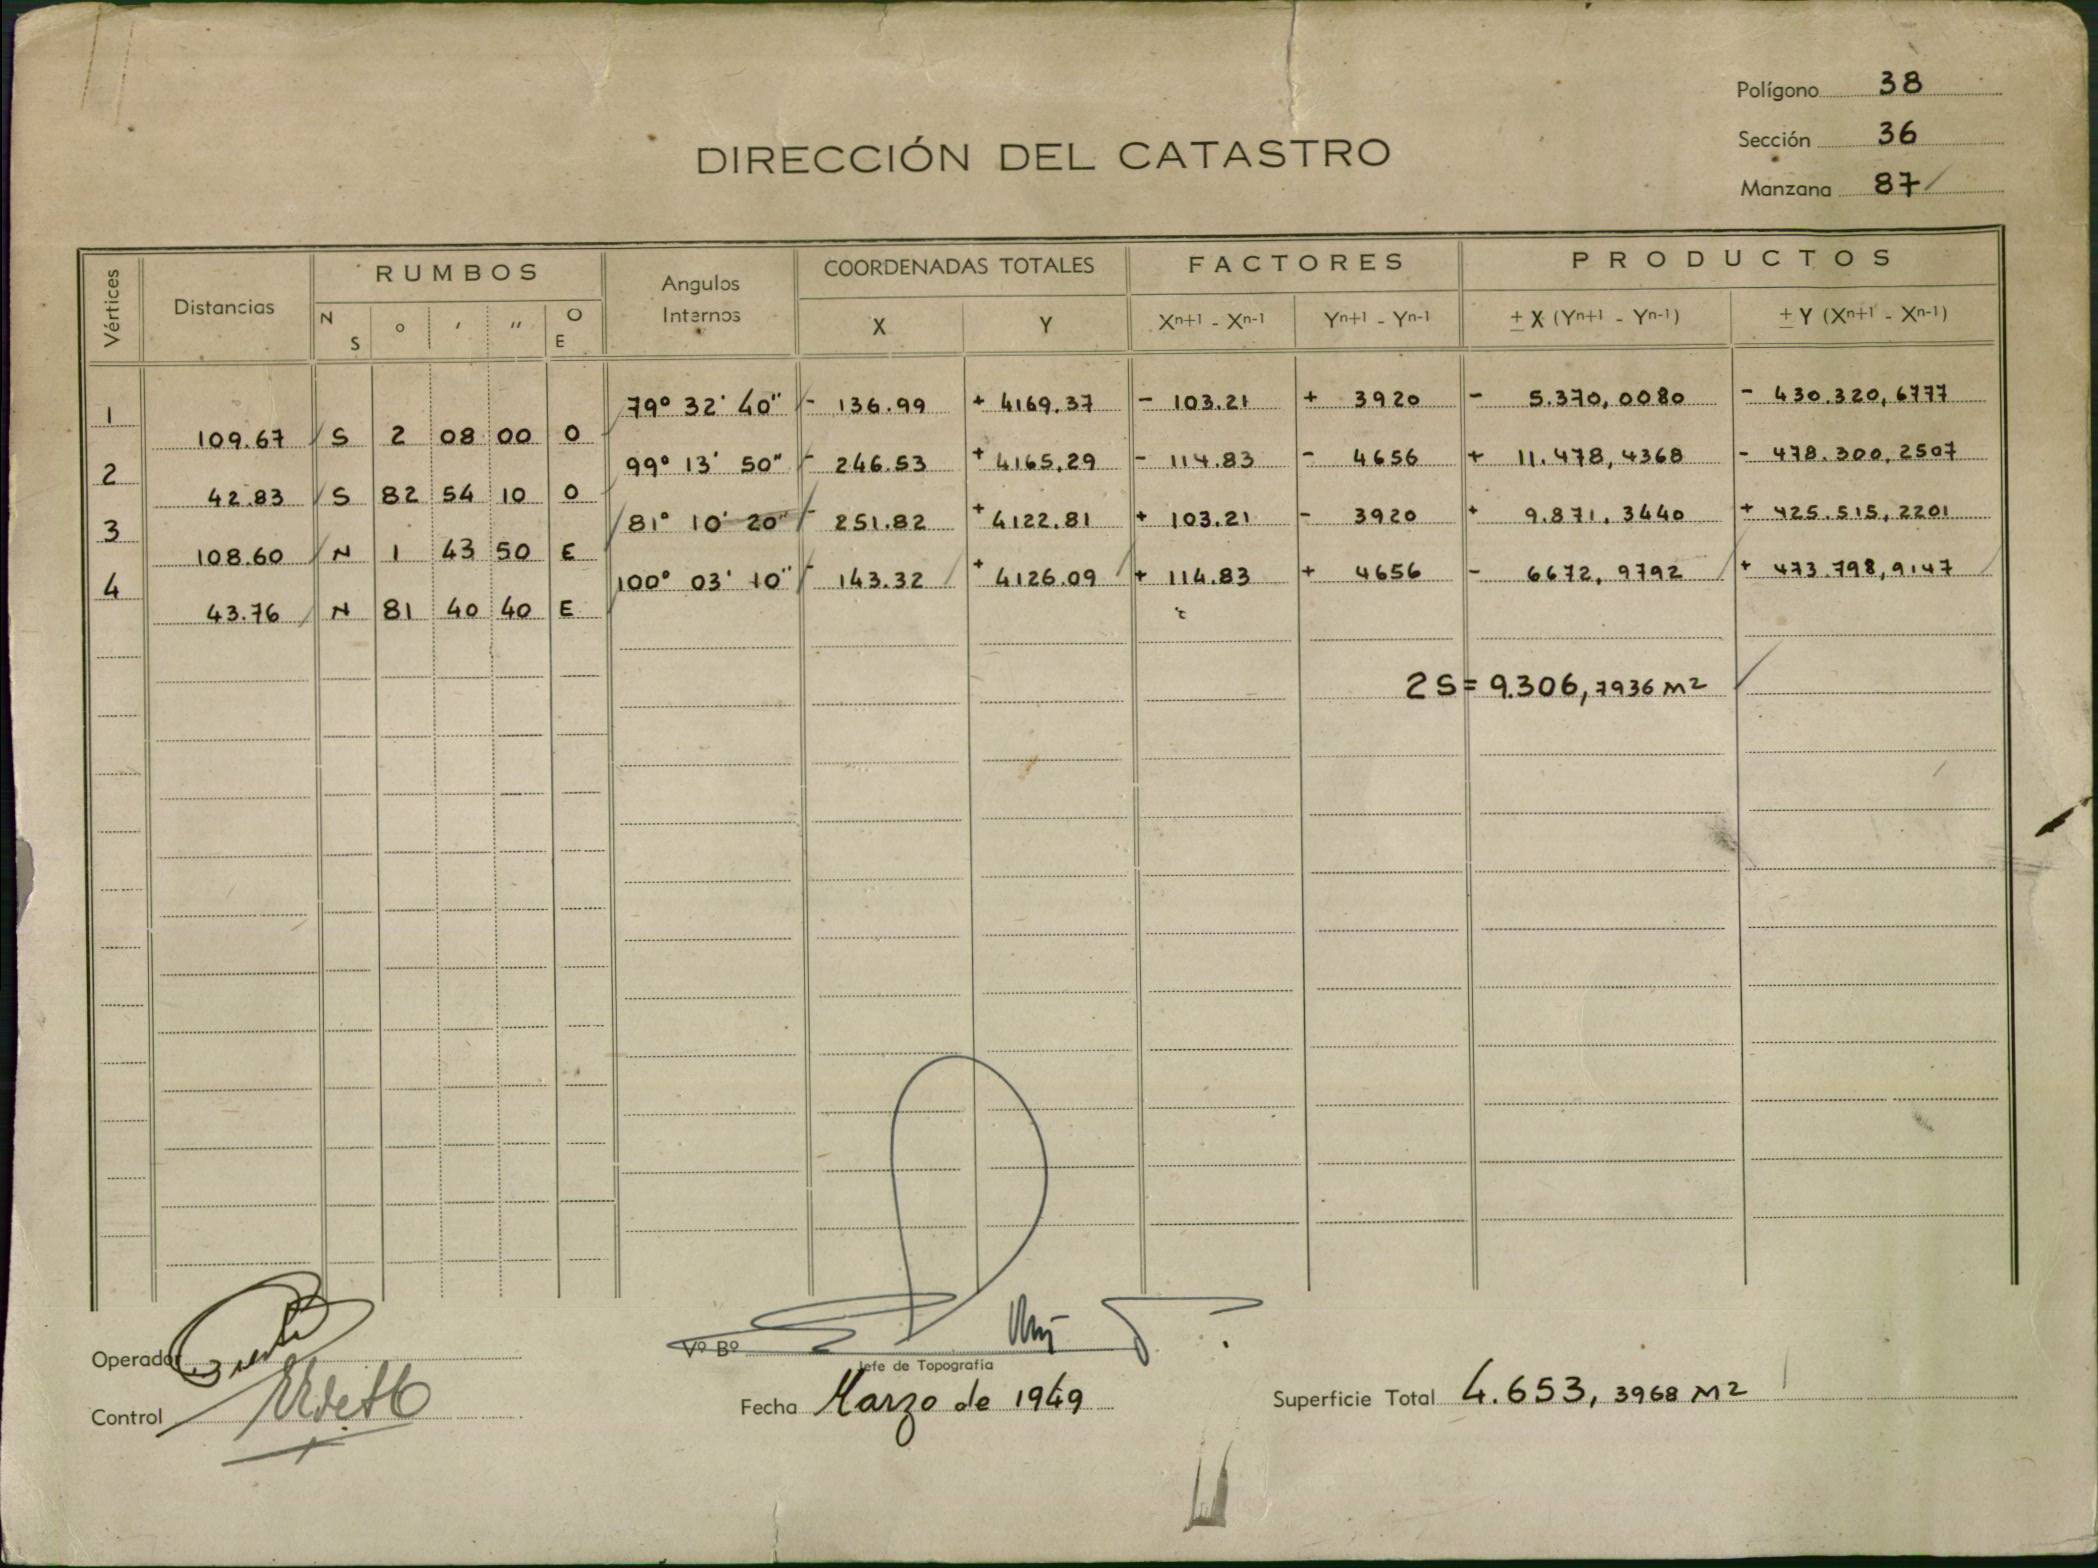 Polígono 38
Sección 36
Manzana 87
DIRECCIÓN DEL CATASTRO
Vértices Distancias RUMBOS Angulos Internos COORDENADAS TOTALES FACTORES PRODUCTOS
N S ° ' " O E X Y Xn+1 - Xn-1 Yn+1 - Yn-1 ± X (Yn+1 - Yn-1) ± Y (Xn+1 - Xn-1)
1 79° 32' 40" - 136.99 + 4169.37 - 103.21 + 3920 - 5.370,0080 - 430.320,6777
109.67 S 2 08 00 O
2 99° 13' 50" - 246.53 + 4165,29 - 114.83 - 4656 + 11.478,4368 - 478.300,2507
42.83 S 82 54 10 O
3 81° 10' 20" - 251.82 + 4122.81 + 103.21 - 3920 + 9.871,3440 + 425.515,2201
108.60 N 1 43 50 E
4 100° 03' 10" - 143.32 + 4126.09 + 114.83 + 4656 - 6672,9792 + 473.798,9147
43.76 N 81 40 40 E
2S = 9.306,7936 M2
Operador
Control
Vº Bº
Jefe de Topografía
Fecha Marzo de 1949
Superficie Total 4.653,3968 M2